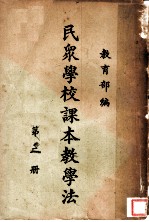 教育部編
民衆學校課本教學法
第 冊